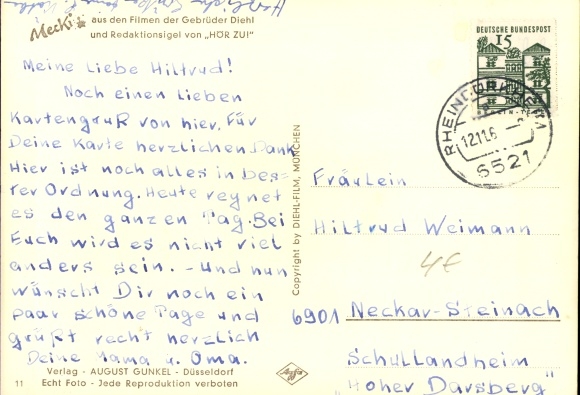 Herzliche Grüße
Mecki aus den Filmen der Gebrüder Diehl
und Redaktionsigel von „HÖR ZU!"
Meine liebe Hiltrud!
Noch einen lieben
Kartengruß von hier. Für
Deine Karte herzlichen Dank
Hier ist noch alles in bes-
ter Ordnung. Heute reynet
es den ganzen Tag. Bei
Euch wird es nicht viel
anders sein. - Und nun
wünscht Dir noch ein
paar schöne Tage und
grüßt recht herzlich
Deine Mama u. Oma.
Verlag - AUGUST GUNKEL - Düsseldorf
11 Echt Foto - Jede Reproduktion verboten
Copyright by DIEHL-FILM, MÜNCHEN
Agfa
DEUTSCHE BUNDESPOST
15
RHEINDÜRKHEIM
12.11.6
6521
Fräulein
Hiltrud Weimann
4€
6901 Neckar-Steinach
Schullandheim
"Hoher Darsberg"